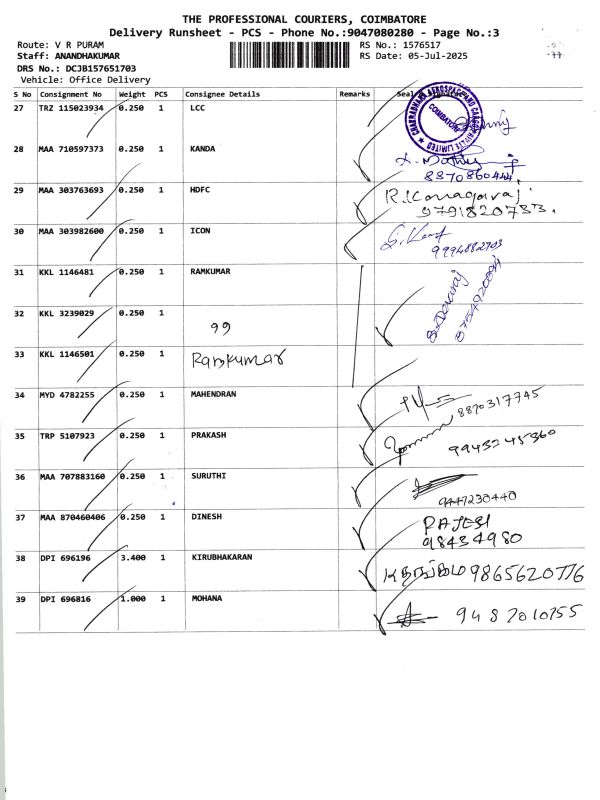 THE PROFESSIONAL COURIERS, COIMBATORE
Delivery Runsheet - PCS - Phone No.:9047080280 - Page No.:3
Route: V R PURAM
RS No.: 1576517
Staff: ANANDHAKUMAR
RS Date: 05-Jul-2025
DRS No.: DCJB157651703
Vehicle: Office Delivery
S No Consignment No Weight PCS Consignee Details Remarks
27 TRZ 115023934 0.250 1 LCC
28 MAA 710597373 0.250 1 KANDA
29 MAA 303763693 0.250 1 HDFC
9791820733.
30 MAA 303982600 0.250 1 ICON
9994882703
31 KKL 1146481 0.250 1 RAMKUMAR
32 KKL 3239029 0.250 1
99
33 KKL 1146501 0.250 1 Ramkumar
34 MYD 4782255 0.250 1 MAHENDRAN
8870317745
35 TRP 5107923 0.250 1 PRAKASH
9943245360
36 MAA 707883160 0.250 1 SURUTHI
9447230440
37 MAA 870460406 0.250 1 DINESH
98434980
38 DPI 696196 3.400 1 KIRUBHAKARAN
9865620776
39 DPI 696816 1.000 1 MOHANA
9487010755